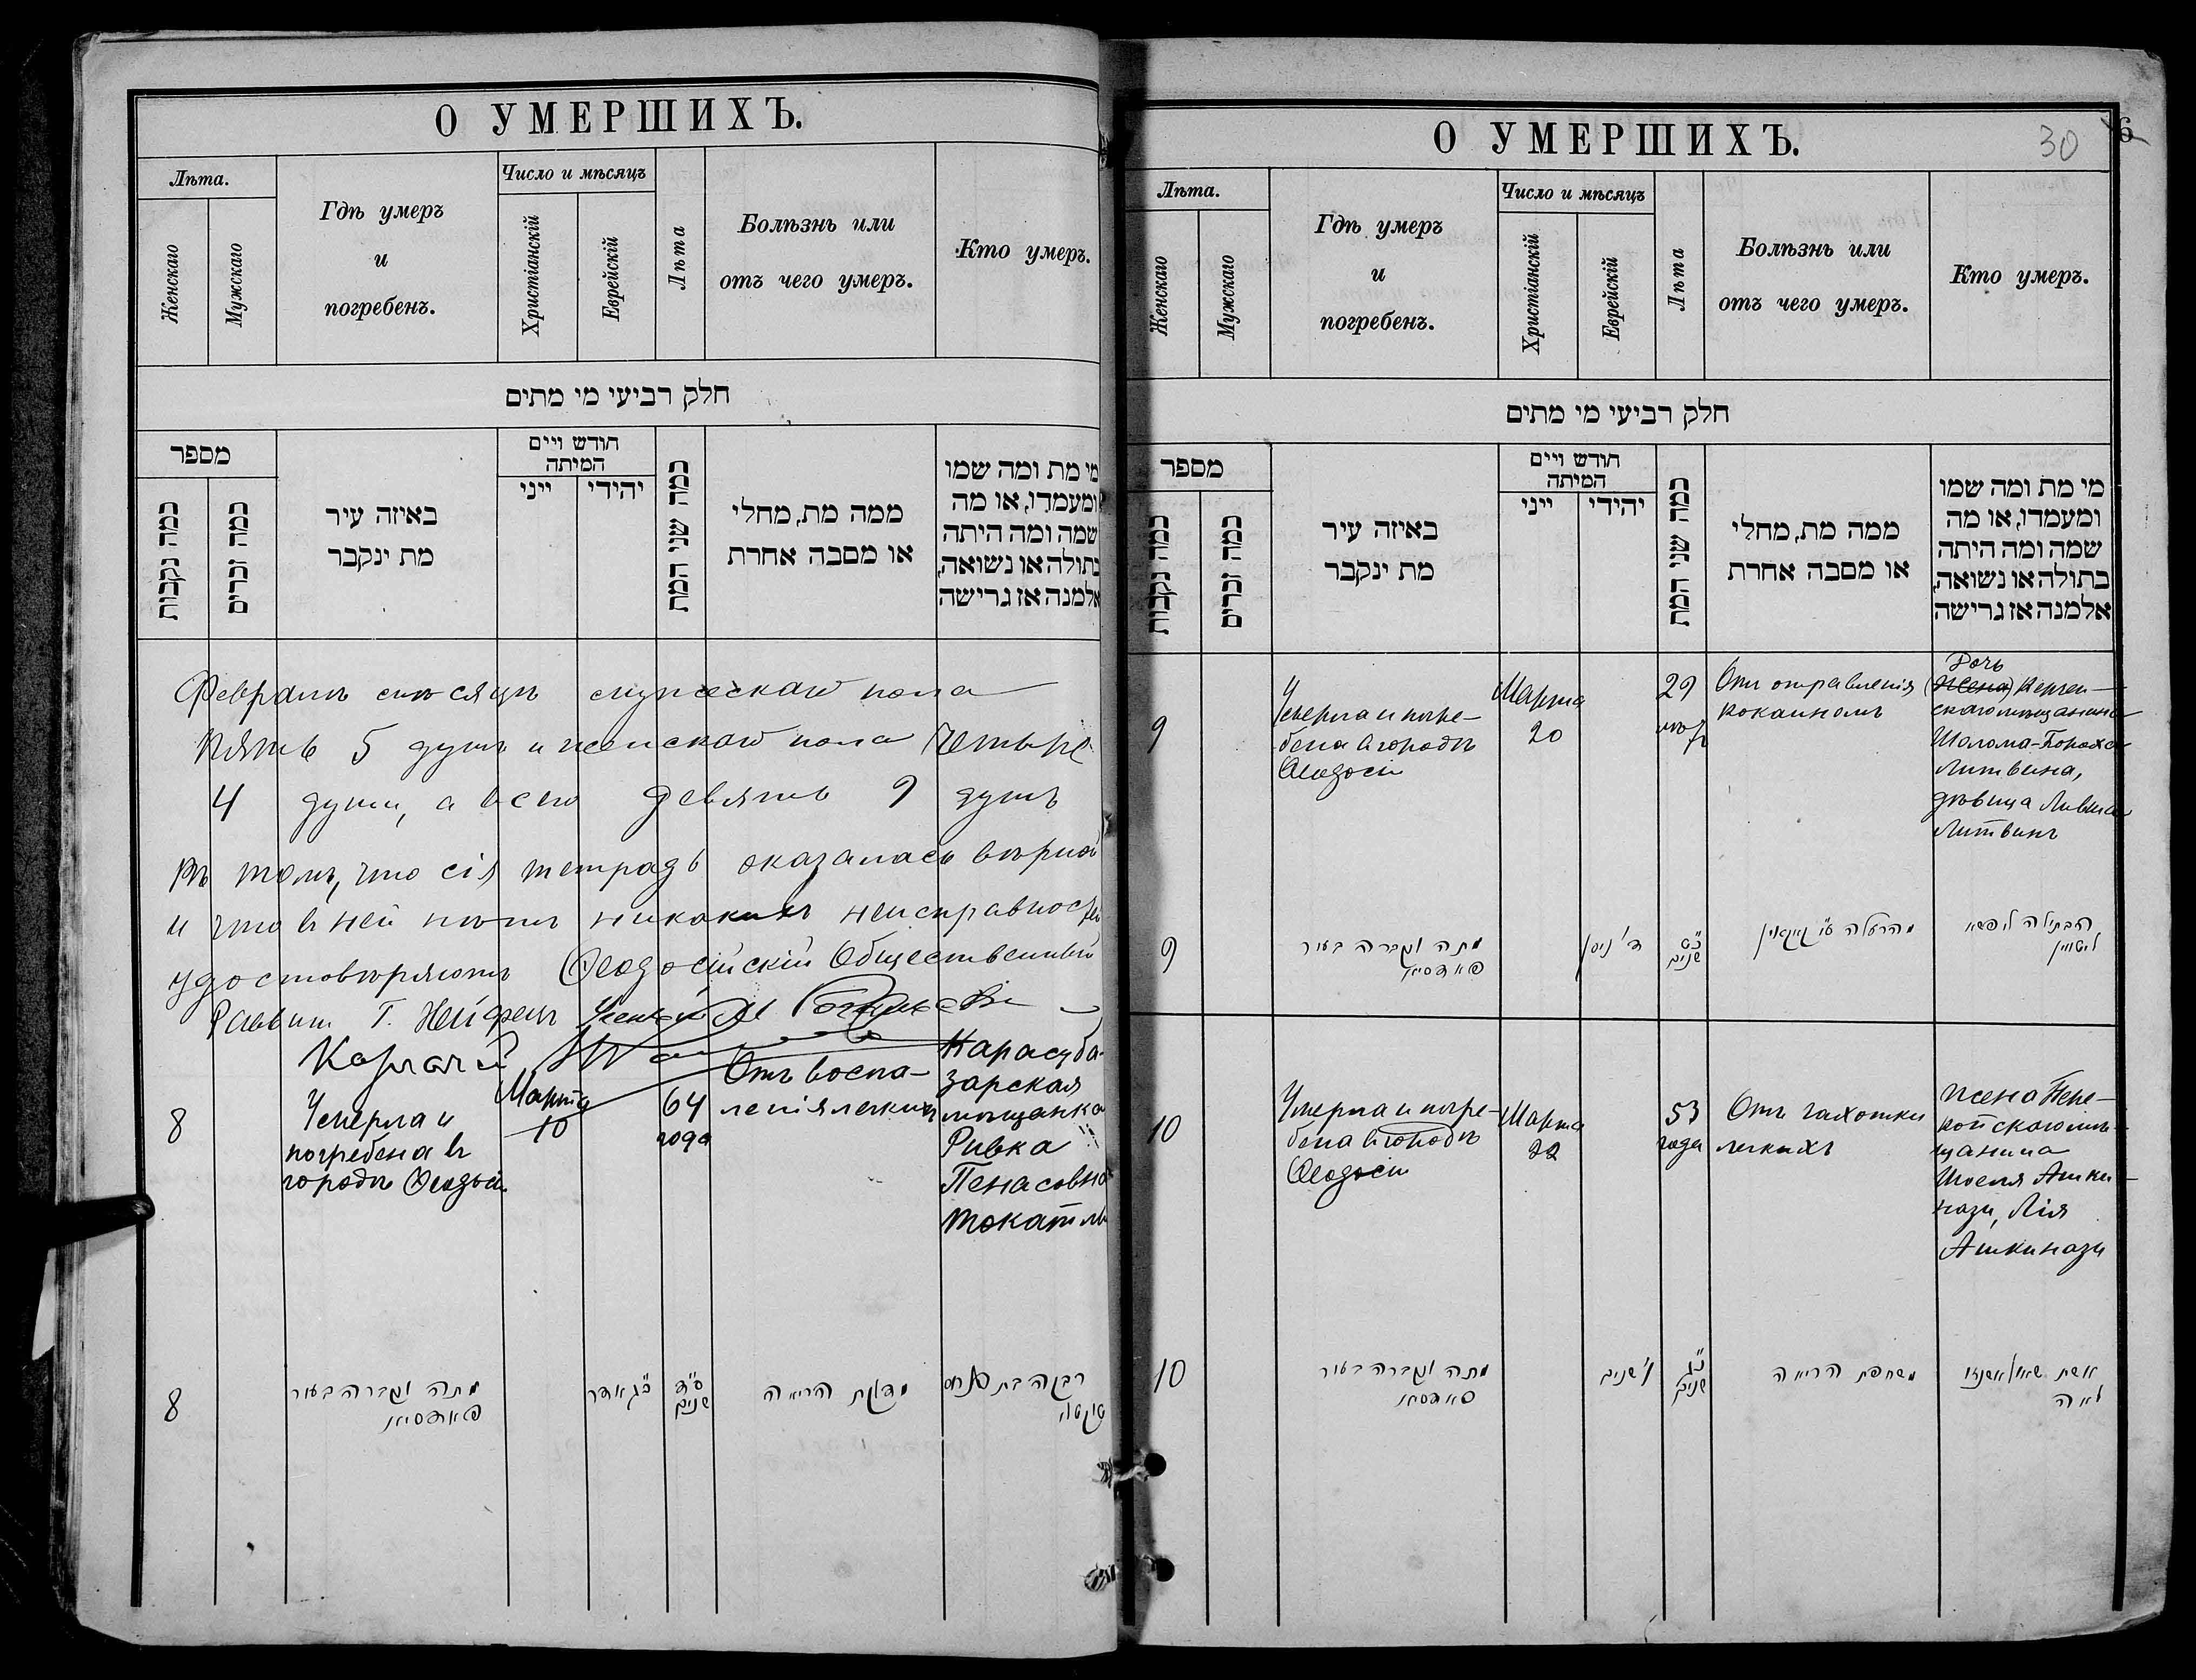 О УМЕРШИХЪ.
Лѣта.
Женскаго
Мужскаго
Гдѣ умеръ
и
погребенъ.
Число и мѣсяцъ
Христіанскій
Еврейскій
Лѣта
Болѣзнь или
отъ чего умеръ.
Кто умеръ.
חלק רביעי מי מתים
מספר
כמה נקבות
כמה זכרים
באיזה עיר
מת ינקבר
חודש ויים
המיתה
ייני
יהידי
כמה שני המת
ממה מת, מחלי
או מסבה אחרת
מי מת ומה שמו
ומעמדו, או מה
שמה ומה היתה
בתולה או נשואה,
אלמנה אז גרישה
Февраль мѣсяцъ мужескаго пола
пять 5 душъ и женскаго пола четыре
4 души, а всего девять 9 душъ
въ томъ, что сія тетрадь оказалась вѣрной
и что въ ней нѣтъ никакихъ неисправностей
удостовѣряютъ Ѳеодосійскій Общественный
Раввинъ Г. Нейфецъ Ученый
Казначей
8
Умерла и
погребена въ
городѣ Ѳеодосіи
Марта
10
64
года
Отъ воспа-
ленія легкихъ
Карасуба-
зарская
мѣщанка
Ривка
Пенасовна
Токатлы
8
מתה ונקברה בעיר
פֿאדסיא
כ"ג אדר
ס"ד
שנים
מדלקת הריאה
רבקה בת פנחס
О УМЕРШИХЪ.
30
6
Лѣта.
Женскаго
Мужскаго
Гдѣ умеръ
и
погребенъ.
Число и мѣсяцъ
Христіанскій
Еврейскій
Лѣта
Болѣзнь или
отъ чего умеръ.
Кто умеръ.
חלק רביעי מי מתים
מספר
כמה נקבות
כמה זכרים
באיזה עיר
מת ינקבר
חודש ויים
המיתה
ייני
יהידי
כמה שני המת
ממה מת, מחלי
או מסבה אחרת
מי מת ומה שמו
ומעמדו, או מה
שמה ומה היתה
בתולה או נשואה,
אלמנה אז גרישה
9
Умерла и погре-
бена въ городѣ
Ѳеодосіи
Марта
20
29
лѣтъ
Отъ отравленія
кокаиномъ
Дочь
(Жена) Керчен-
скаго мѣщанина
Шолома-Бороха
Литвина,
дѣвица Ливша
Литвинъ
9
מתה ונקברה בעיר
ד' ניסן
כ"ט
שנים
מהרעלה ע"י קוקאין
הבתולה ליפשא
ליטווין
10
Умерла и погре-
бена въ городѣ
Ѳеодосіи
Марта
22
53
года
Отъ чахотки
легкихъ
Жена Пере-
копскаго мѣ-
щанина
Шоеля Ашки-
нази, Лія
Ашкинази
10
מתה ונקברה בעיר
שנים
משחפת הריאה
אשת שאול אשכנזי
לאה